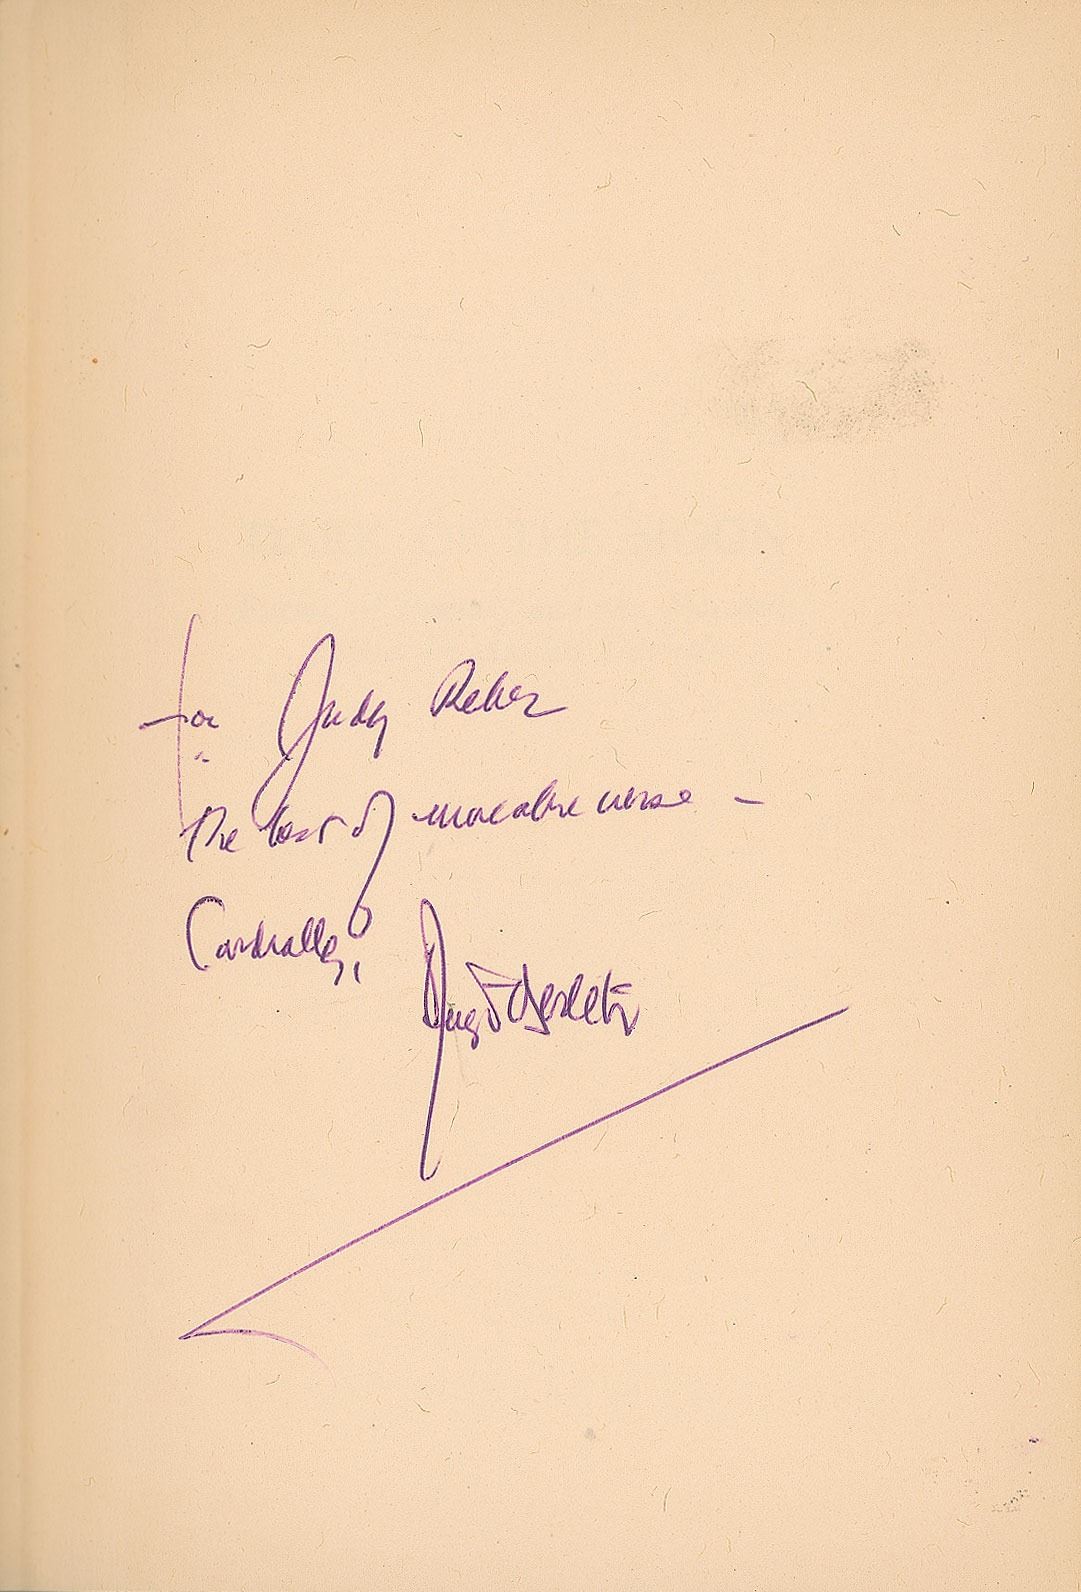 for Judy Reber
the best of macabre verse –
Cordially,
August Derleth